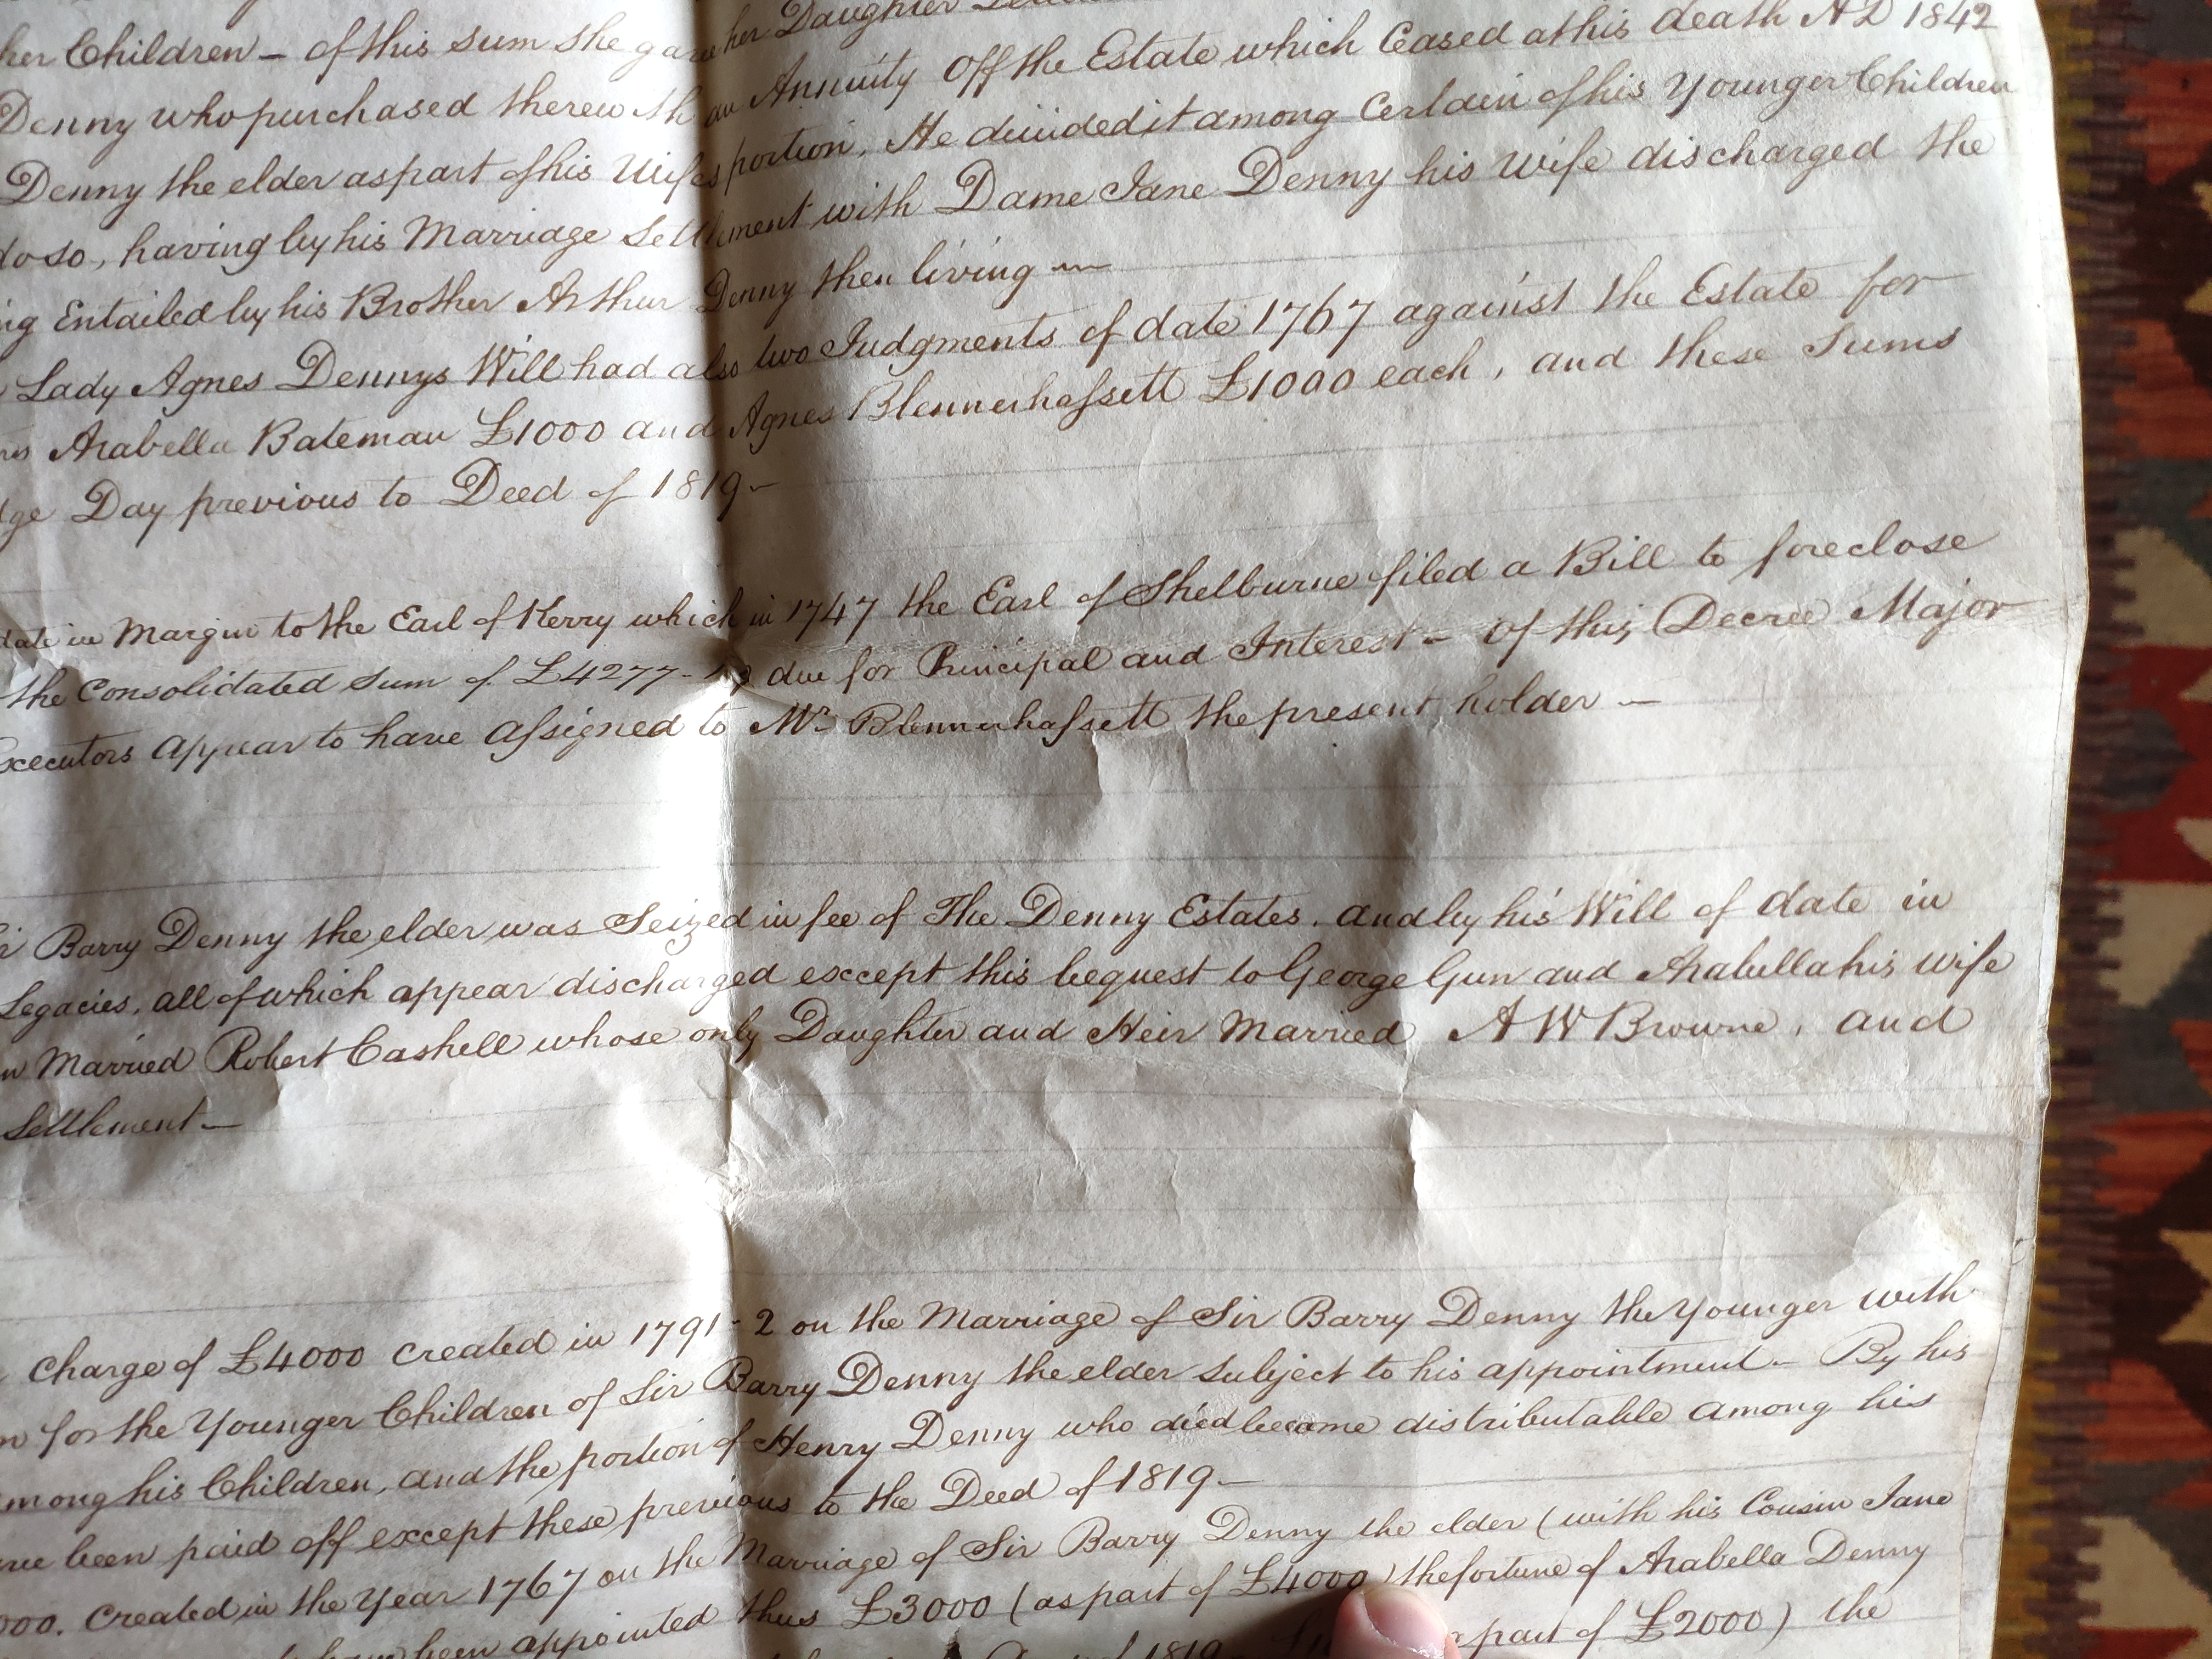 her Children – of this sum she gave her Daughter
Denny who purchased therewith an Annuity Off the Estate which Ceased at his death AD 1842
Denny the elder as part of his Wifes portion, He divided it among Certain of his Younger Children
do so, having by his Marriage Settlement with Dame Jane Denny his Wife discharged the
Entailed by his Brother Arthur Denny then living –
Lady Agnes Dennys Will had also two Judgments of date 1767 against the Estate for
Arabella Bateman £1000 and Agnes Blennerhassett £1000 each, and these Sums
Day previous to Deed of 1819 –
date in Margin to the Earl of Kerry which in 1747 the Earl of Shelburne filed a Bill to foreclose
the Consolidated Sum of £4277- due for Principal and Interest – Of this Decree Major
Executors appear to have assigned to Mr Blennerhassett the present holder –
Barry Denny the elder was Seized in fee of The Denny Estates, and by his Will of date in
Legacies, all of which appear discharged except this bequest to George Gun and Arabella his Wife
Married Robert Cashell whose only Daughter and Heir Married A W Browne, and
Settlement –
Charge of £4000 created in 1791-2 on the Marriage of Sir Barry Denny the Younger with
for the Younger Children of Sir Barry Denny the elder subject to his appointment – By his
among his Children, and the portion of Henry Denny who died became distributable among his
been paid off except these previous to the Deed of 1819 –
000. Created in the Year 1767 on the Marriage of Sir Barry Denny the elder (with his Cousin Jane
been appointed thus £3000 (as part of £4000) the fortune of Arabella Denny
part of £2000) the
1819